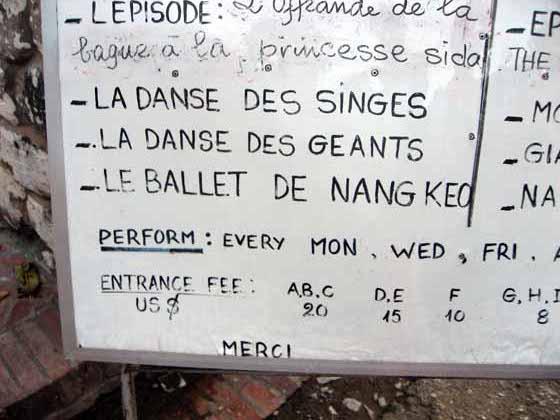 - L'EPISODE: L'offrande de la - EP
bague à la princesse sida THE
- LA DANSE DES SINGES - MO
- LA DANSE DES GEANTS - GIA
- LE BALLET DE NANG KEO - NA
PERFORM: EVERY MON, WED, FRI. A
ENTRANCE FEE: A,B,C D,E F G,H,I
US $ 20 15 10 8
MERCI